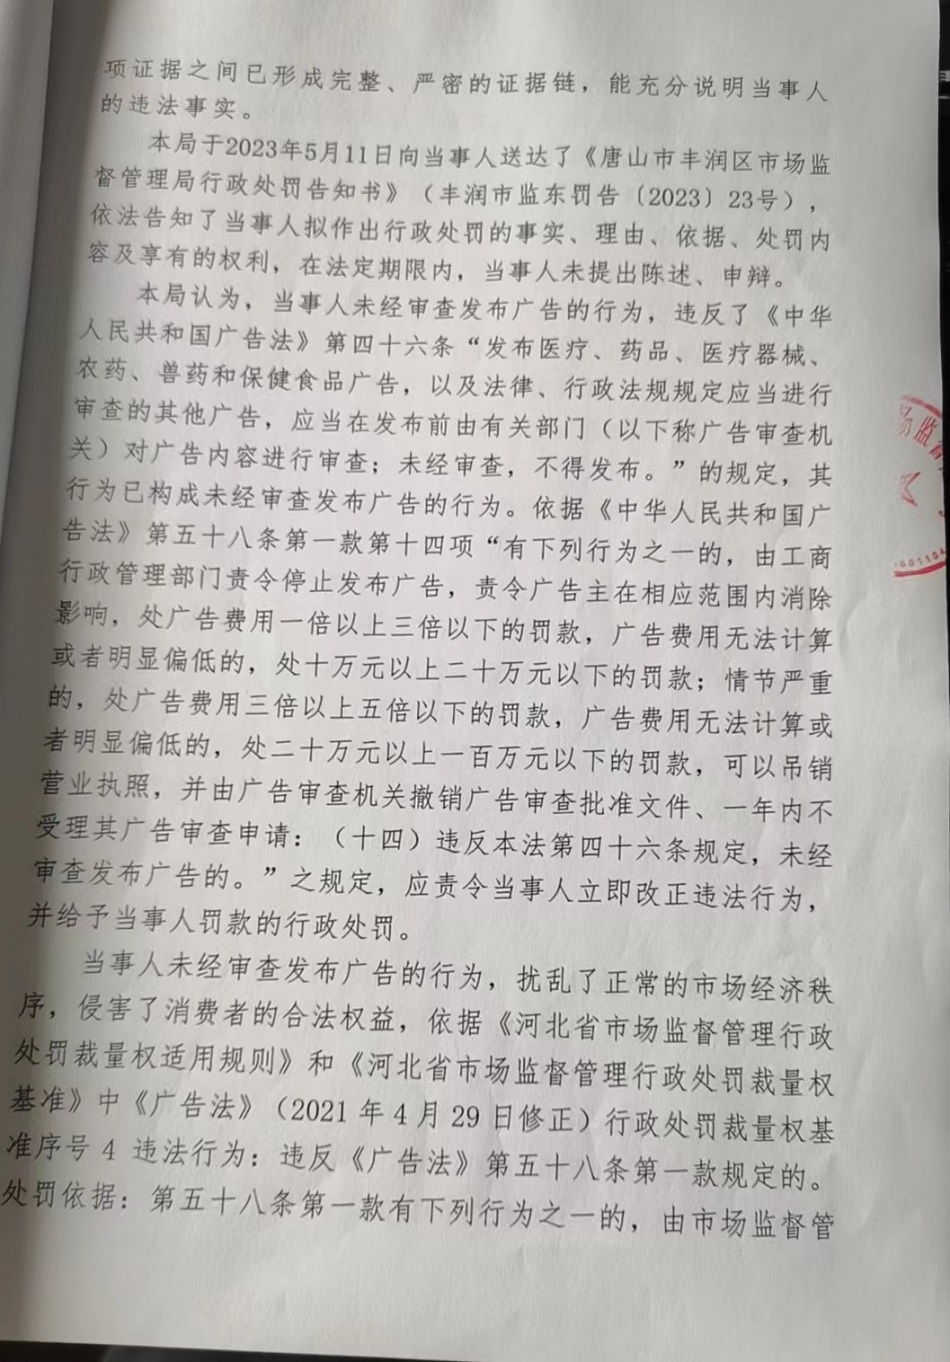 项证据之间已形成完整、严密的证据链，能充分说明当事人
的违法事实。
本局于2023年5月11日向当事人送达了《唐山市丰润区市场监
督管理局行政处罚告知书》（丰润市监东罚告〔2023〕23号），
依法告知了当事人拟作出行政处罚的事实、理由、依据、处罚内
容及享有的权利，在法定期限内，当事人未提出陈述、申辩。
本局认为，当事人未经审查发布广告的行为，违反了《中华
人民共和国广告法》第四十六条“发布医疗、药品、医疗器械、
农药、兽药和保健食品广告，以及法律、行政法规规定应当进行
审查的其他广告，应当在发布前由有关部门（以下称广告审查机
关）对广告内容进行审查；未经审查，不得发布。”的规定，其
行为已构成未经审查发布广告的行为。依据《中华人民共和国广
告法》第五十八条第一款第十四项“有下列行为之一的，由工商
行政管理部门责令停止发布广告，责令广告主在相应范围内消除
影响，处广告费用一倍以上三倍以下的罚款，广告费用无法计算
或者明显偏低的，处十万元以上二十万元以下的罚款；情节严重
的，处广告费用三倍以上五倍以下的罚款，广告费用无法计算或
者明显偏低的，处二十万元以上一百万元以下的罚款，可以吊销
营业执照，并由广告审查机关撤销广告审查批准文件、一年内不
受理其广告审查申请：（十四）违反本法第四十六条规定，未经
审查发布广告的。”之规定，应责令当事人立即改正违法行为，
并给予当事人罚款的行政处罚。
当事人未经审查发布广告的行为，扰乱了正常的市场经济秩
序，侵害了消费者的合法权益，依据《河北省市场监督管理行政
处罚裁量权适用规则》和《河北省市场监督管理行政处罚裁量权
基准》中《广告法》（2021年4月29日修正）行政处罚裁量权基
准序号4 违法行为：违反《广告法》第五十八条第一款规定的。
处罚依据：第五十八条第一款有下列行为之一的，由市场监督管
场监